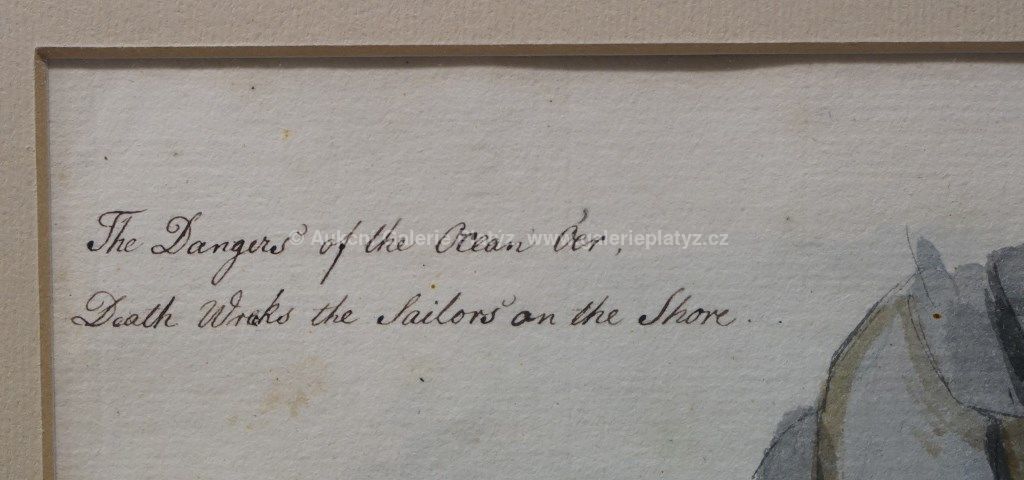 The Dangers of the Ocean Oer,
© Aukční Galerie Platýz, www.galerieplatyz.cz
Death Wrecks the Sailors on the Shore..